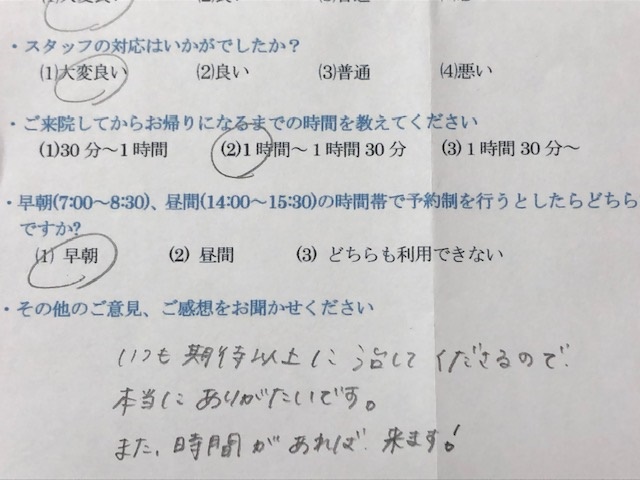 ・スタッフの対応はいかがでしたか?
(1)大変良い (2)良い (3)普通 (4)悪い
・ご来院してからお帰りになるまでの時間を教えてください
(1)30分～1時間 (2)1時間～1時間30分 (3)1時間30分～
・早朝(7:00～8:30)、昼間(14:00～15:30)の時間帯で予約制を行うとしたらどちら
ですか?
(1) 早朝 (2) 昼間 (3) どちらも利用できない
・その他のご意見、ご感想をお聞かせください
いつも期待以上に治してくださるので
本当にありがたいです。
また、時間があれば来ます!